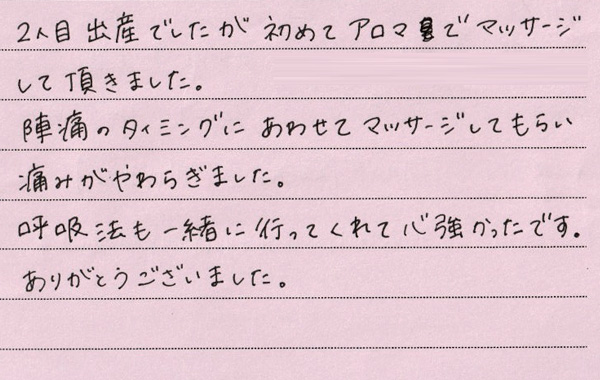 2人目出産でしたが初めてアロマでマッサージ
して頂きました。
陣痛のタイミングにあわせてマッサージしてもらい
痛みがやわらぎました。
呼吸法も一緒に行ってくれて心強かったです。
ありがとうございました。